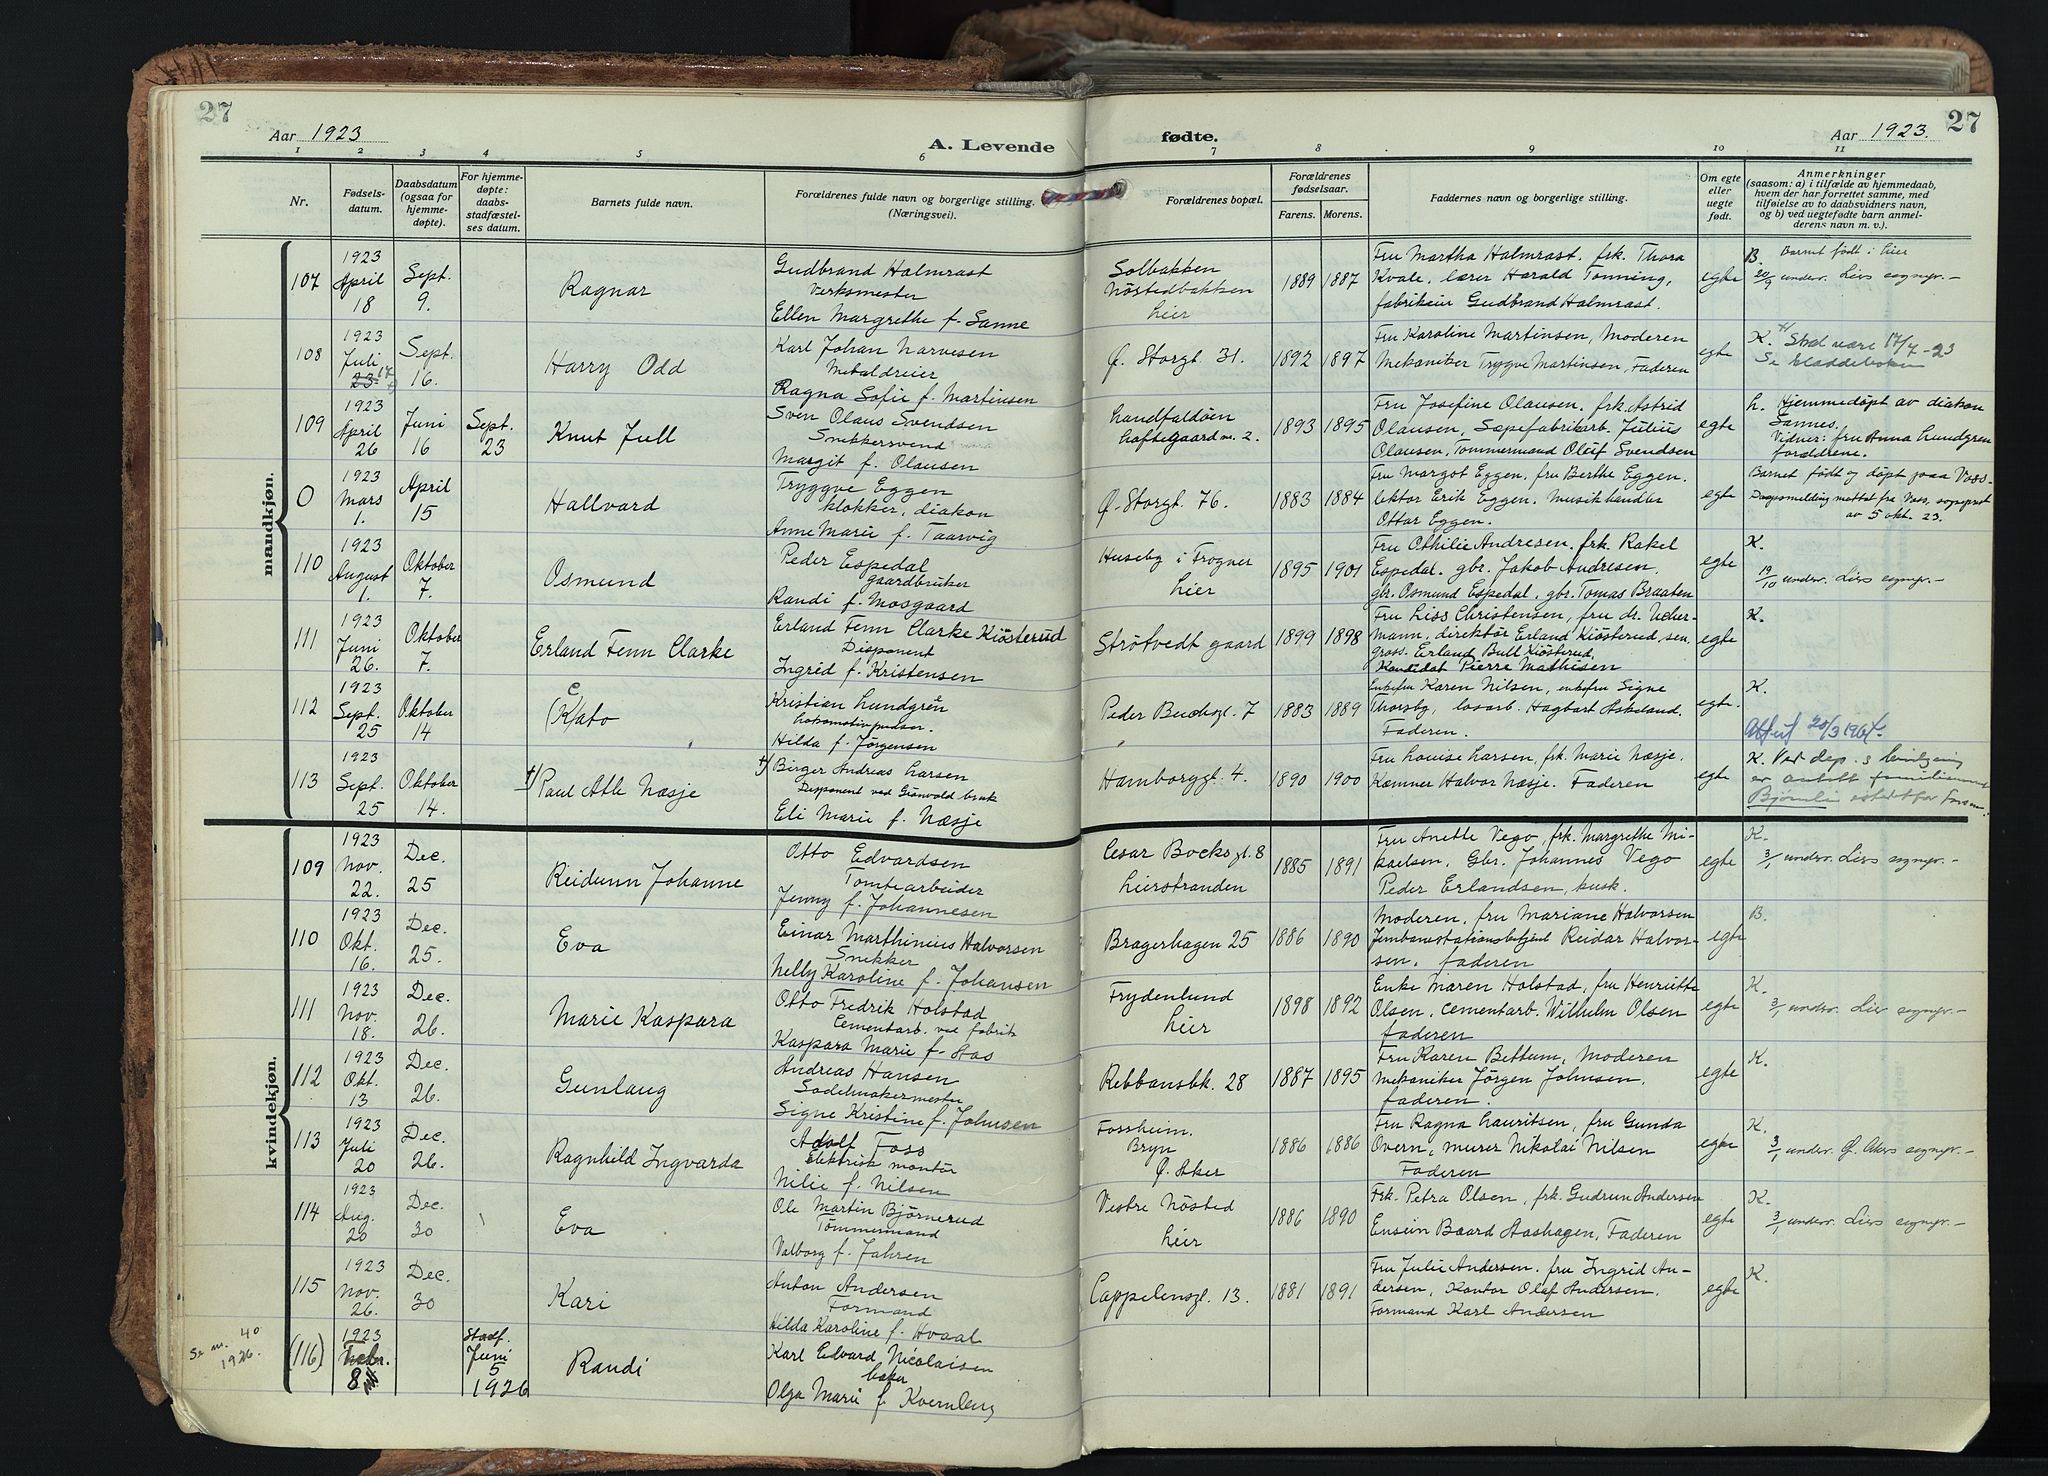 27
Aar 1923
A. Levende
1 2 3 4 5 6
Nr.
Fødsels-
datum.
Daabsdatum
(ogsaa for
hjemme-
døpte).
For hjemme-
døpte:
daabs-
stadfæstel-
ses datum.
Barnets fulde navn.
Forældrenes fulde navn og borgerlige stilling.
(Næringsvei).
fødte.
Aar 1923.
27
7 8 9 10 11
Forældrenes bopæl.
Forældrenes
fødselsaar.
Farens. Morens.
Faddernes navn og borgerlige stilling.
Om egte
eller
uegte
født.
Anmerkninger
(saasom: a) i tilfælde av hjemmedaab,
hvem der har forrettet samme, med
tilføielse av to daabsvidners navn,
og b) ved uegtefødte barn anmel-
derens navn m. v.).
mandkjøn.
107
1923
April
18
Sept.
9.
Ragnar
Gudbrand Halmrast
Verksmester
Ellen Margrethe f. Sanne
Solbakken
Nøstedbakken
Lier
1889 1887
Fru Martha Halmrast. frk. Thora
Kvale, lærer Harald Tønning,
fabrikeier Gudbrand Halmrast.
egte
B. Barnet født i Lier
20/9 underr. Liers sognepr. –
108
1923
Juli
23 17
Sept.
16.
Harry Odd
Karl Johan Narvesen
Metaldreier
Ragna Sofie f. Martinsen
Ø. Storgt. 31.
1892 1897
Fru Karoline Martinsen, Moderen
Mekaniker Trygve Martinsen, Faderen
egte
K. Skal være 17/7-23
Se kladdeboken
109
1923
April
26
Juni
16
Sept.
23
Knut Jull
Sven Olaus Svendsen
Snikkersvend
Margit f. Olausen
Landfaldøen
Haftegaardsv. 2.
1893 1895
Fru Josefine Olausen. frk. Astrid
Olausen, Sepefabrikarb. Julius
Olausen, Tømmermand Oluf Svendsen
egte
L. Hjemmedøpt av diakon
Sannes.
Vidner: fru Anna Lundgren
forældrene.
0
1923
Mars
1.
April
15
Hallvard
Tryggve Eggen
klokker, diakon
Anne Marie f. Taarvig
Ø. Storgt. 76.
1883 1884
Fru Margot Eggen, fru Berthe Eggen.
lektor Erik Eggen. Musikhandler
Ottar Eggen.
egte
Barnet født og døpt paa Voss-
Daapsmelding mottat fra Voss sogneprest
av 5 okt. 23.
110
1923
August
1.
Oktober
7.
Osmund
Peder Espedal
gaardbruker
Randi f. Mosgaard
Huseby i Frogner
Lier
1895 1901
Fru Othilie Andresen. frk. Rakel
Espedal. gbr. Jakob Andresen,
gbr. Osmund Espedal, gbr. Tomas Braaten
egte
K.
19/10 underr. Liers sognepr. –
111
1923
Juni
26.
Oktober
7.
Erland Fenn Clarke
Erland Fenn Clarke Kiøsterud
Disponent
Ingrid f. Kristensen
Strøtvedt gaard
1899 1898
Fru Liss Christensen, fru dr. Ucher-
mann, direktør Erland Kiøsterud, sen.
gross. Erland Bull Kiøsterud,
Kandidat Pierre Mathisen
egte
K.
112
1923
Sept.
25
Oktober
14
C
(K)ato
Kristian Lundgrén
Lokomotivpudser.
Hilda f. Jørgensen
Peder Buchsgt. 7
1883 1889
Enkefru Karen Nilsen, enkefru Signe
Thorsby, losarb. Hagbart Askeland.
Faderen.
egte.
K.
Attest 20/3 1964.
113
1923
Sept.
25
Oktober
14.
+) Paul Atle Næsje
+) Birger Andreas Larsen
Disponent ved Grønvold bruk
Eli Marie f. Næsje
Hamborggt. 4.
1890 1900
Fru Louise Larsen, frk. Marie Næsje.
Kæmner Halvor Næsje. Faderen
egte
K. Ved dep. s bevilgning
er antatt familienavnet
Bjørnli istedetfor Larsen
kvindekjøn.
109
1923
Nov.
22.
Dec.
25
Reidunn Johanne
Otto Edvardsen
Tomtearbeider
Jenny f. Johannesen
Cesar Bocksgt. 8
Lierstranden
1885 1891
Fru Anette Vego, frk. Margrethe Mi-
kaelsen, Gbr. Johannes Vego
Peder Erlandsen, kusk.
egte
K.
3/1 underr. Liers sognepr. –
110
1923
Okt.
16.
Dec.
25.
Eva
Einar Marthinius Halvorsen
Snekker
Nelly Karoline f. Johansen
Bragerhagen 25
1886 1890
Moderen, fru Mariane Halvorsen
Jernbanestationsbetjent Reidar Halvor-
sen. faderen
egte
B.
111
1923
Nov.
18.
Dec.
26.
Marie Kaspara
Otto Fredrik Holstad
Cementarb. ved fabrik
Kaspara Marie f. Aas
Frydenlund
Lier
1898 1892
Enke Maren Holstad, fru Henriette
Olsen, cementarb. Wilhelm Olsen
faderen
egte
K.
3/1 underr. Lier sognepr. –
112
1923
Okt.
13
Dec.
26.
Gunlaug
Andreas Hansen
Sadelmakermester
Signe Kristine f. Johnsen
Rebbansbk. 28
1887 1895
Fru Karen Bettum, Moderen
Mekaniker Jørgen Johnsen.
faderen.
egte
K.
113
1923
Juli
20
Dec.
26.
Ragnhild Ingvarda
Adolf Foss
Elektrisk montør
Nilie f. Nilsen
Fossheim.
Bryn
Ø. Aker
1886 1886
Fru Ragna Lauritsen, fru Gunda
Overn, murer Nikolai Nilsen
Faderen
egte
K.
3/1 underr. Ø. Akers sognepr. –
114
1923
Aug.
20
Dec.
30
Eva
Ole Martin Bjørnerud
Tømmermand
Valborg f. Jahren
Vestre Nøsted
Lier
1886 1890
Frk. Petra Olsen, frk. Gudrun Andersen
Baard Aashagen, Faderen
egte
K.
3/1 underr. Liers sognepr. –
115
1923
Nov.
26.
Dec.
30
Kari
Anton Andersen
Formand
Hilda Karoline f. Hvaal
Cappelensgt. 13.
1881 1891
Fru Julie Andersen. fru Ingrid An-
dersen, Kontor Olaf Andersen.
Formand Karl Andersen
egte
K.
Se nr. 40
1926.
(116)
1923
Febr.
8
Stadf.
Juni
5
1926
Randi
Karl Edvard Nicolaisen
baker
Olga Marie f. Kvernberg